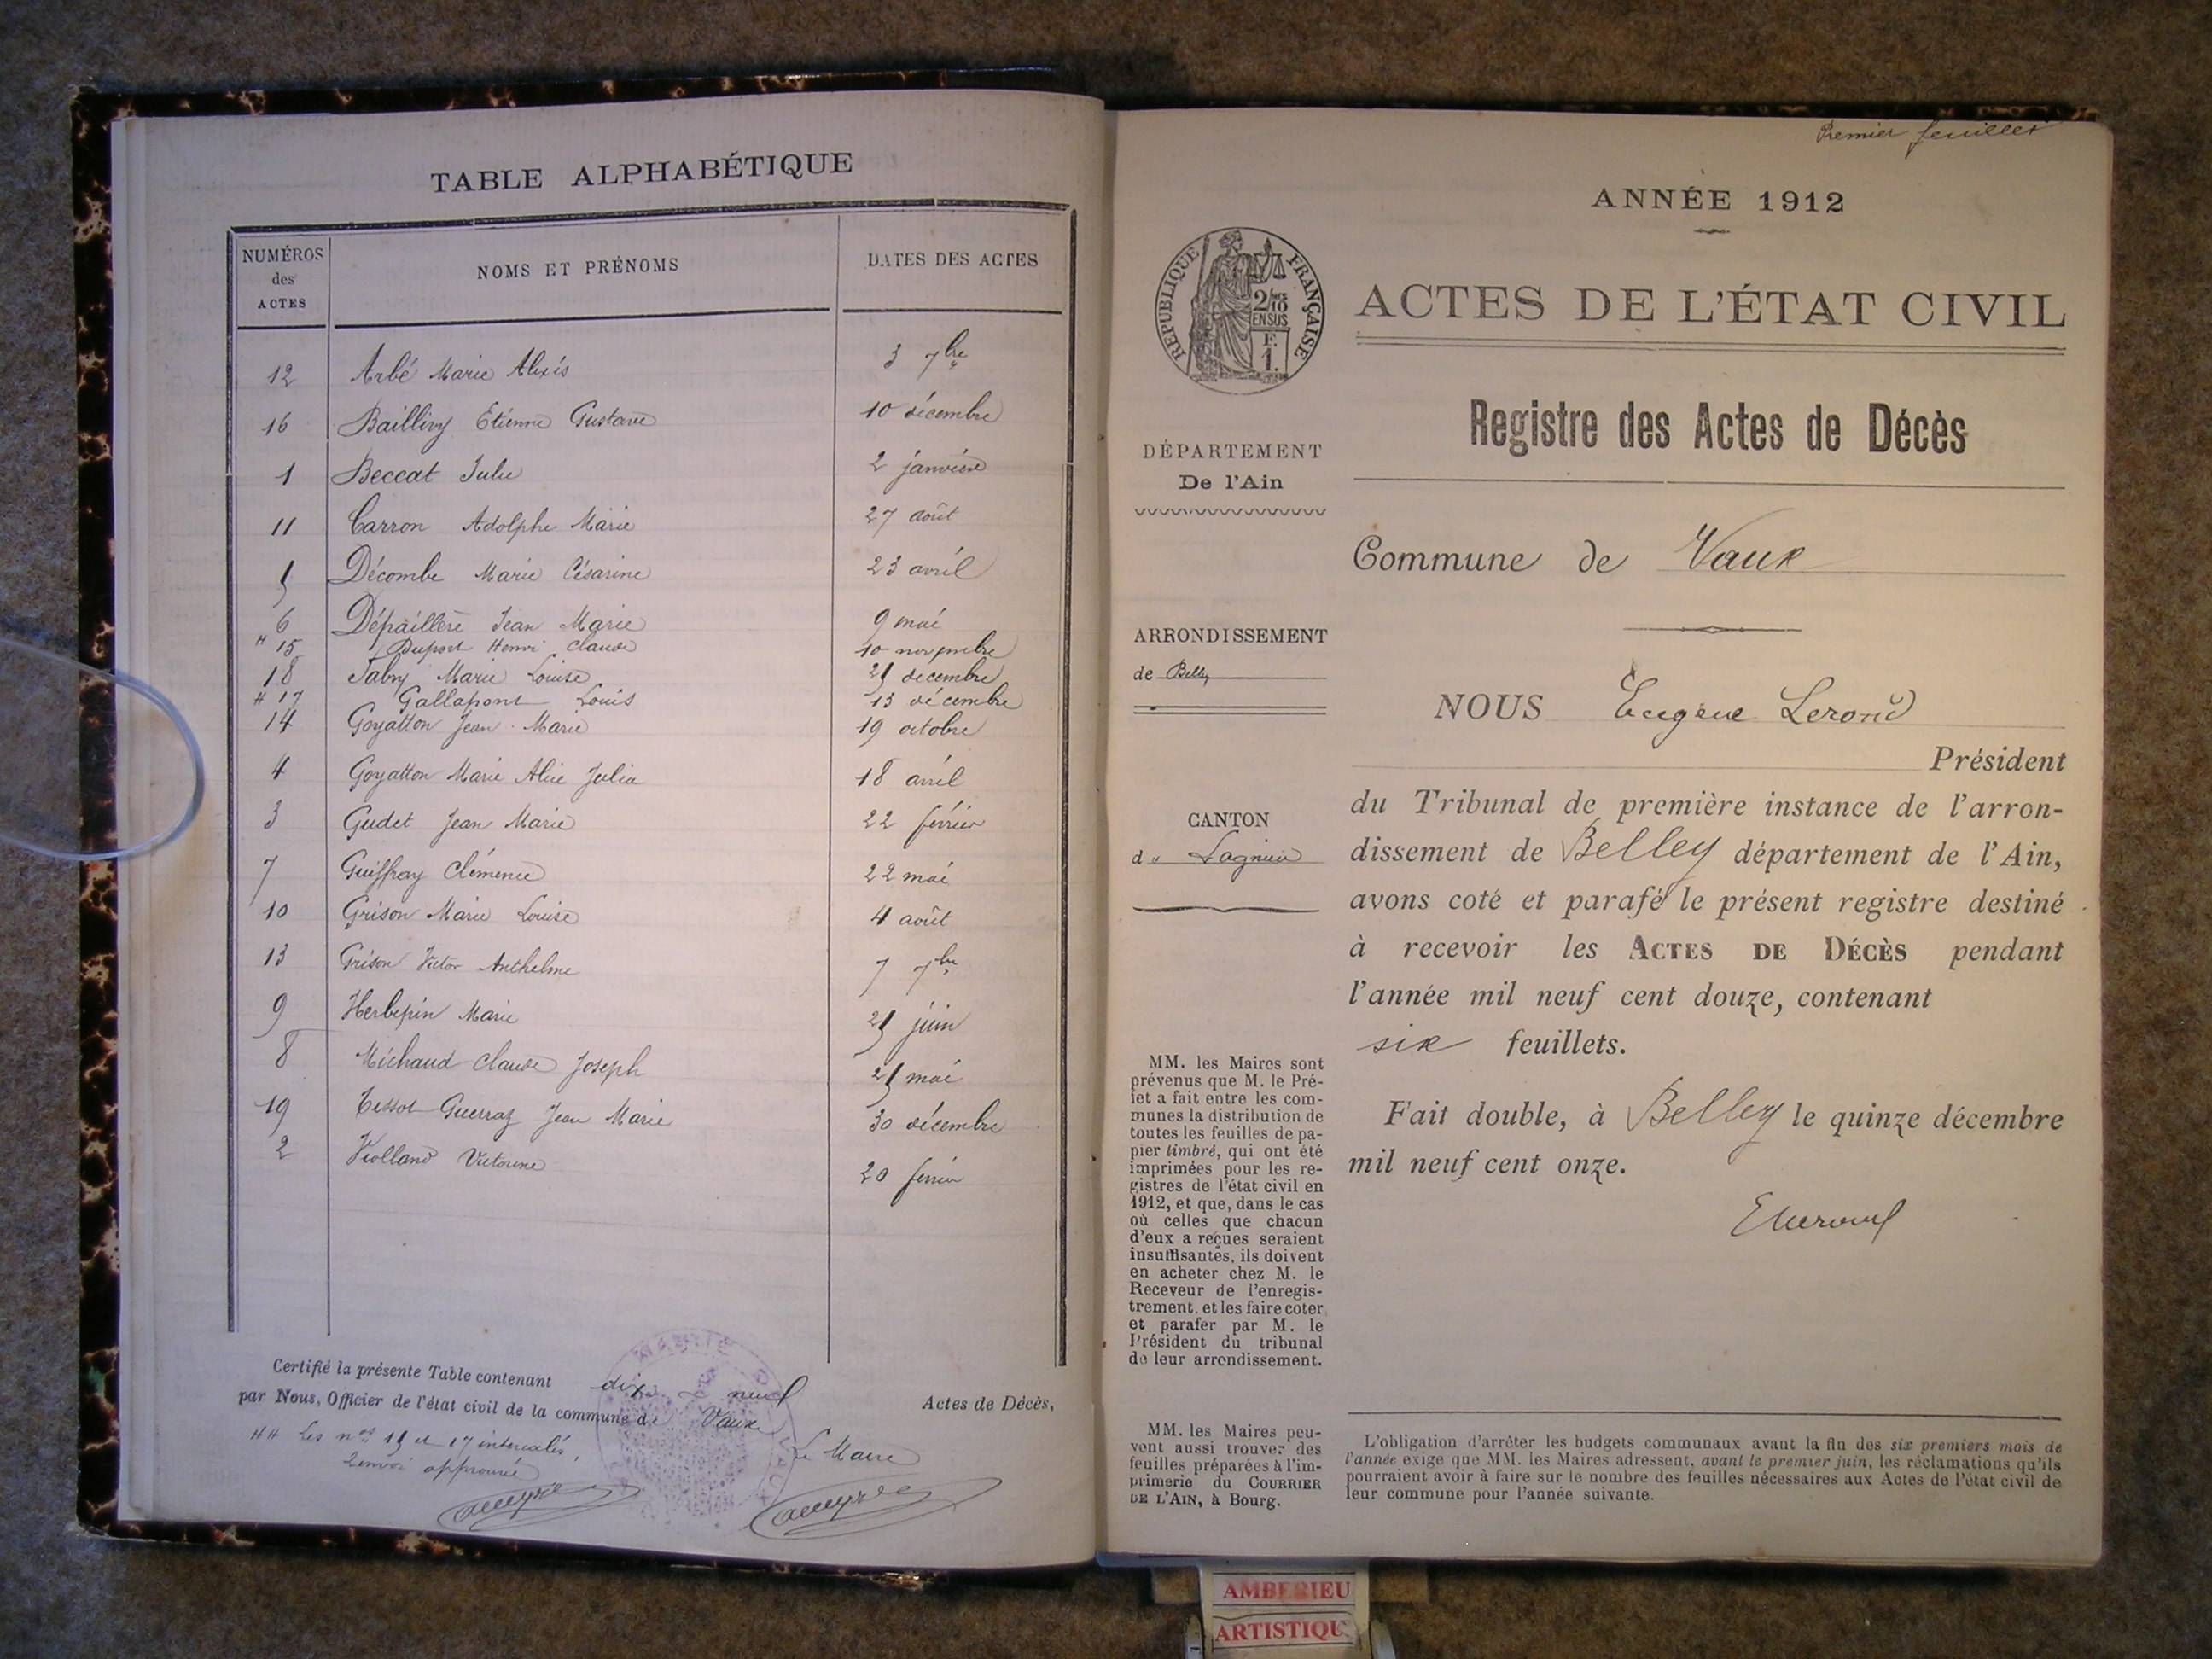 TABLE ALPHABÉTIQUE
NUMÉROS des ACTES NOMS ET PRÉNOMS DATES DES ACTES
12 Arbé Marie Alexis 3 7bre
16 Baillivy Etienne Gustave 10 décembre
1 Beccat Julie 2 janvier
11 Carron Adolphe Marie 27 août
5 Décombe Marie Césarine 23 avril
6 Dépaillère Jean Marie 9 mai
# 15 Dupont Henri Claude 10 novembre
18 Fabry Marie Louise 25 décembre
# 17 Gallapont Louis 13 décembre
14 Goyatton Jean-Marie 19 octobre
4 Goyatton Marie Alice Julia 18 avril
3 Gudet Jean Marie 22 février
7 Guiffray Clémence 22 mai
10 Grison Marie Louise 4 août
13 Grison Victor Anthelme 7 7bre
9 Herbepin Marie 25 juin
8 Michaud Claude Joseph 25 mai
19 Tissot Guerraz Jean Marie 30 décembre
2 Violland Victorine 20 février
Certifié la présente Table contenant dix neuf Actes de Décès,
par Nous, Officier de l'état civil de la commune de Vaux
## Les nos 15 et 17 intercalés,
Renvoi approuvé
Le Maire
Premier feuillet
ANNÉE 1912
RÉPUBLIQUE FRANÇAISE
2/10
EN SUS
F.
1.
ACTES DE L'ÉTAT CIVIL
Registre des Actes de Décès
DÉPARTEMENT
De l'Ain
Commune de Vaux
ARRONDISSEMENT
de Belley
NOUS Eugène Lerond
Président
du Tribunal de première instance de l'arron-
dissement de Belley département de l'Ain,
avons coté et parafé le présent registre destiné
à recevoir les ACTES DE DÉCÈS pendant
l'année mil neuf cent douze, contenant
six feuillets.
Fait double, à Belley le quinze décembre
mil neuf cent onze.
CANTON
de Lagnieu
MM. les Maires sont
prévenus que M. le Pré-
fet a fait entre les com-
munes la distribution de
toutes les feuilles de pa-
pier timbré, qui ont été
imprimées pour les re-
gistres de l'état civil en
1912, et que, dans le cas
où celles que chacun
d'eux a reçues seraient
insuffisantes, ils doivent
en acheter chez M. le
Receveur de l'enregis-
trement, et les faire coter
et parafer par M. le
Président du tribunal
de leur arrondissement.
MM. les Maires peu-
vent aussi trouver des
feuilles préparées à l'im-
primerie du COURRIER
DE L'AIN, à Bourg.
L'obligation d'arrêter les budgets communaux avant la fin des six premiers mois de
l'année exige que MM. les Maires adressent, avant le premier juin, les réclamations qu'ils
pourraient avoir à faire sur le nombre des feuilles nécessaires aux Actes de l'état civil de
leur commune pour l'année suivante.
AMBERIEU
ARTISTIQU